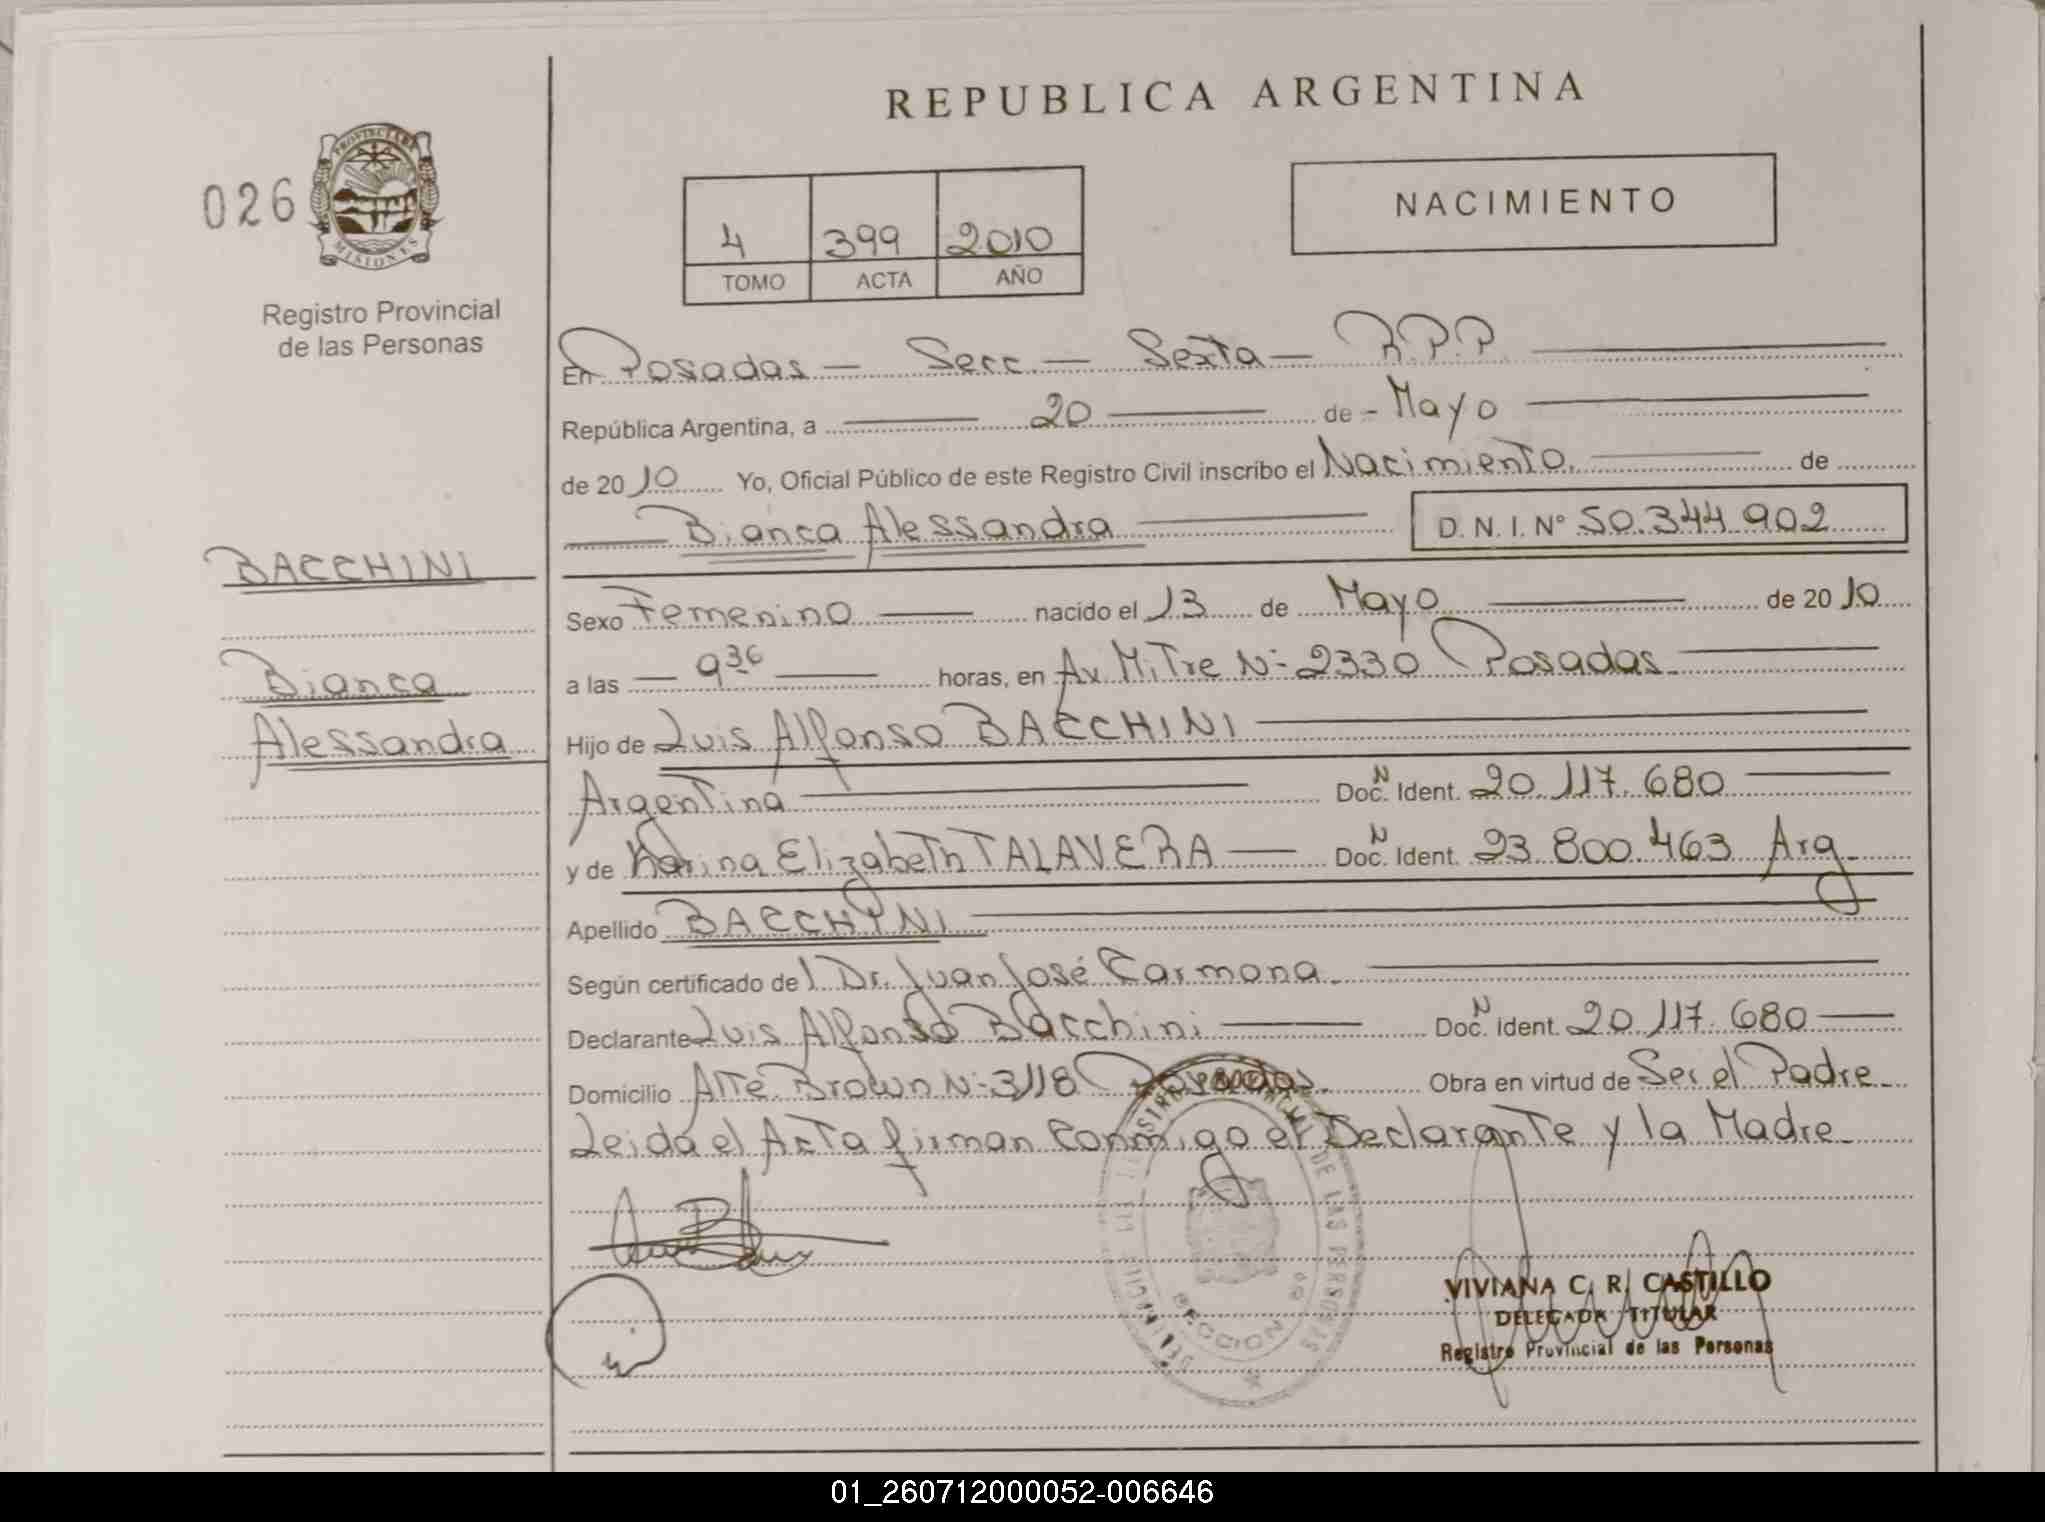 REPUBLICA ARGENTINA
026
PROVINCIA DE
MISIONES
Registro Provincial
de las Personas
4 399 2010
TOMO ACTA AÑO
NACIMIENTO
En Posadas — Secc — Sexta — R.P.P.
República Argentina, a 20 de - Mayo
de 2010 Yo, Oficial Público de este Registro Civil inscribo el Nacimiento. de
Bianca Alessandra D. N. I. Nº 50.344.902
BACCHINI
Bianca
Alessandra
Sexo Femenino nacido el 13 de Mayo de 2010
a las — 9 36 — horas, en Av. Mitre Nº 2330 Posadas
Hijo de Luis Alfonso BACCHINI
Argentina Doc. N Ident. 20.117.680
y de Karina Elizabeth TALAVERA — Doc. N Ident. 23.800.463 Arg
Apellido BACCHINI
Según certificado del Dr. Juan José Carmona
Declarante Luis Alfonso Bacchini Doc. N Ident. 20.117.680
Domicilio Alte Brown Nº 3118 Posadas. Obra en virtud de Ser el Padre
Leida el Acta firman conmigo el Declarante y la Madre
DE LAS PERSONAS
SECCION 6º
VIVIANA C. R. CASTILLO
DELEGADA TITULAR
Registro Provincial de las Personas
01_260712000052-006646